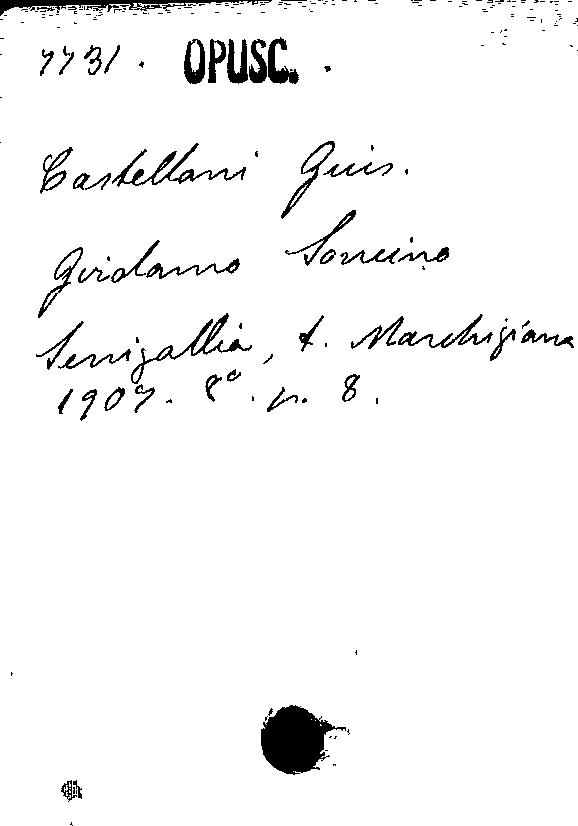 7731. OPUSC.
Castellani Gius.
Girolamo Soncino
Senigallia, t. Marchigiana
1907. 8°. p. 8.